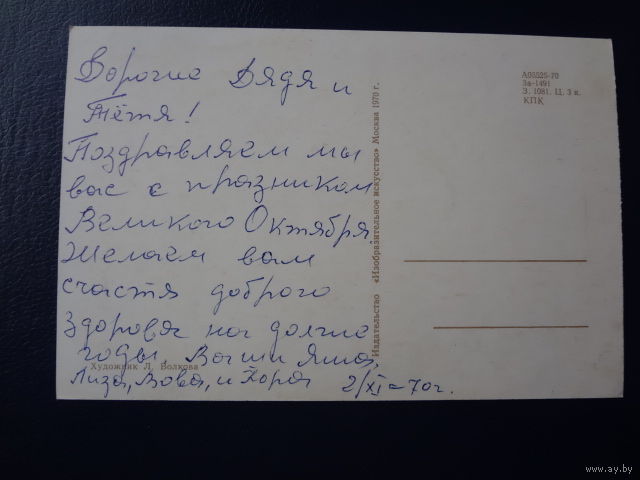 Дорогие Дядя и
Тётя!
Поздравляем мы
вас с празником
Великого Октября.
Желаем вам
счастя доброго
здоровя на долгие
годы. Ваши Яша,
Лиза, Вова, и Жора
2/XI-70г.
Художник Л. Волкова
Издательство «Изобразительное искусство» Москва 1970 г.
А03525-70
За-1491
З. 1081. Ц. 3 к.
КПК
www.ay.by